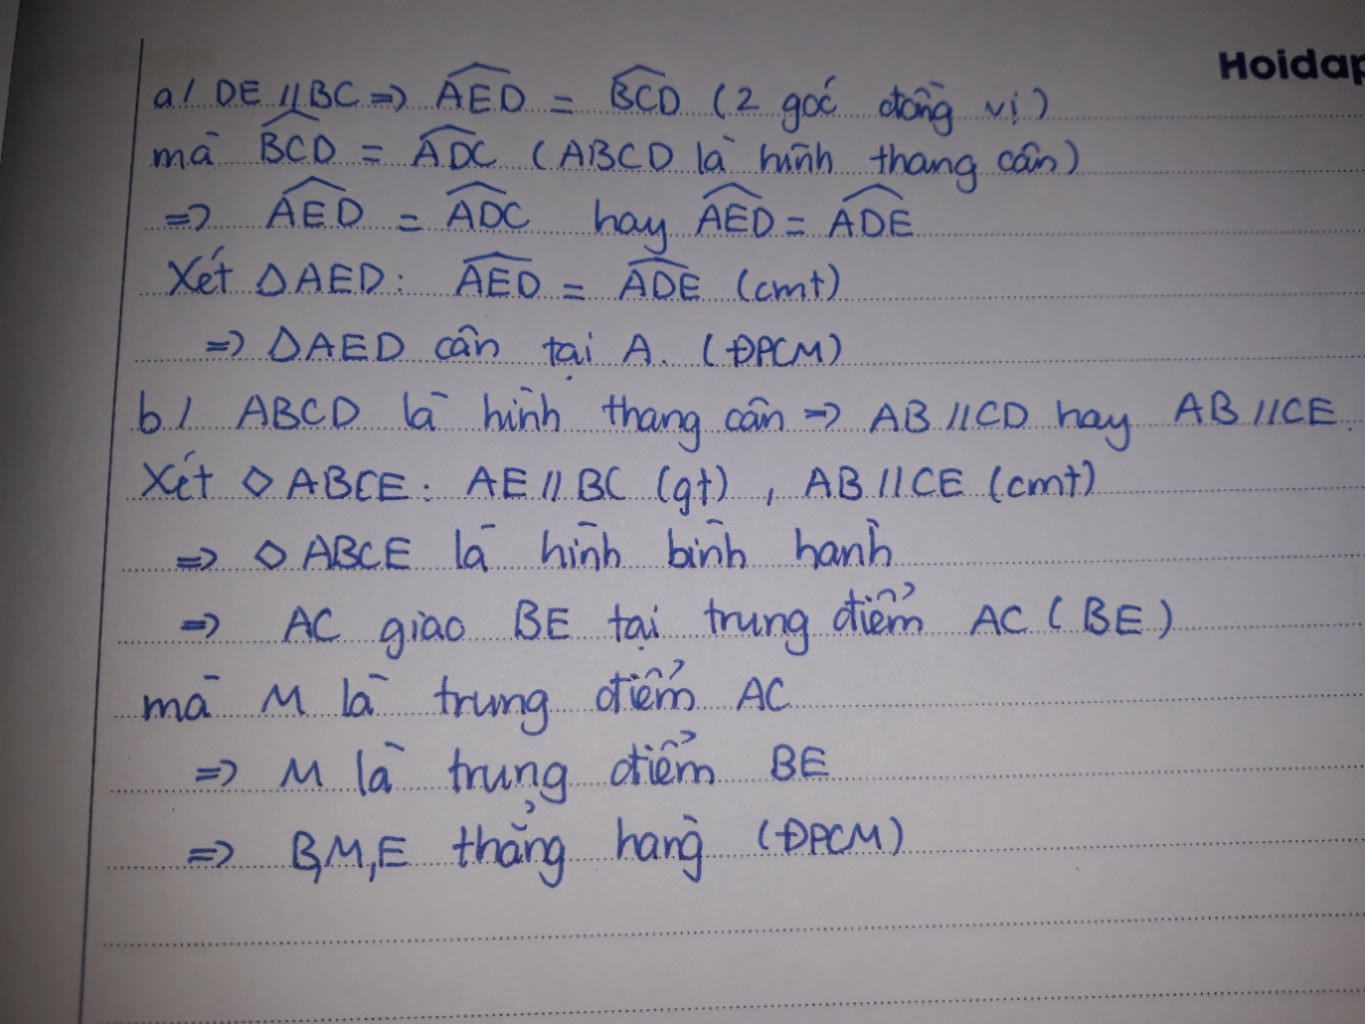 Hoidap
a/ DE // BC => \widehat{AED} = \widehat{BCD} (2 góc đồng vị)
mà \widehat{BCD} = \widehat{ADC} (ABCD là hình thang cân)
=> \widehat{AED} = \widehat{ADC} hay \widehat{AED} = \widehat{ADE}
Xét △AED: \widehat{AED} = \widehat{ADE} (cmt)
=> △AED cân tại A. (ĐPCM)
b/ ABCD là hình thang cân => AB // CD hay AB // CE.
Xét ◇ABCE: AE // BC (gt), AB // CE (cmt)
=> ◇ABCE là hình bình hành
=> AC giao BE tại trung điểm AC (BE)
mà M là trung điểm AC
=> M là trung điểm BE
=> B,M,E thẳng hàng (ĐPCM)